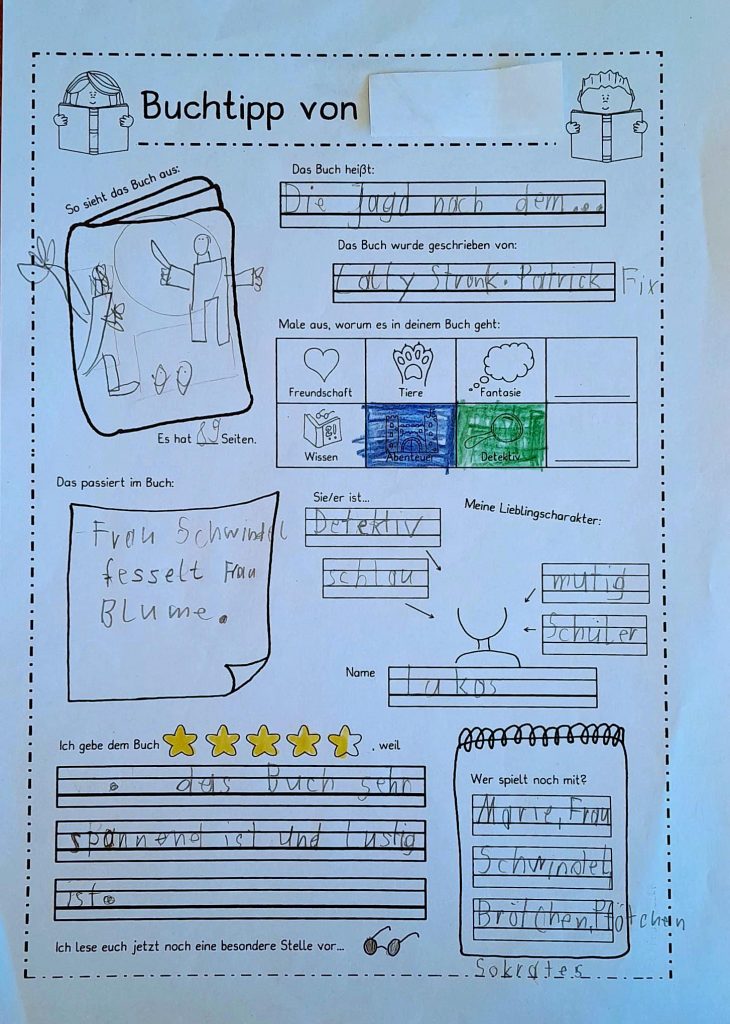 Buchtipp von
So sieht das Buch aus:
Das Buch heißt:
Die Jagd nach dem...
Das Buch wurde geschrieben von:
Lally Stronk. Patrick Fix
Male aus, worum es in deinem Buch geht:
Freundschaft Tiere Fantasie
Wissen Abenteuer Detektiv
Es hat 89 Seiten.
Das passiert im Buch:
Frau Schwindel
fesselt Frau
BLume.
Sie/er ist...
Detektiv
schlau
Meine Lieblingscharakter:
mutig
Schüler
Name
Lukas
Ich gebe dem Buch , weil
das Buch sehr
spannend ist und lustig
ist.
Wer spielt noch mit?
Marie, Frau
Schwindel,
Brötchen, Pfötchen
Sokrates
Ich lese euch jetzt noch eine besondere Stelle vor...